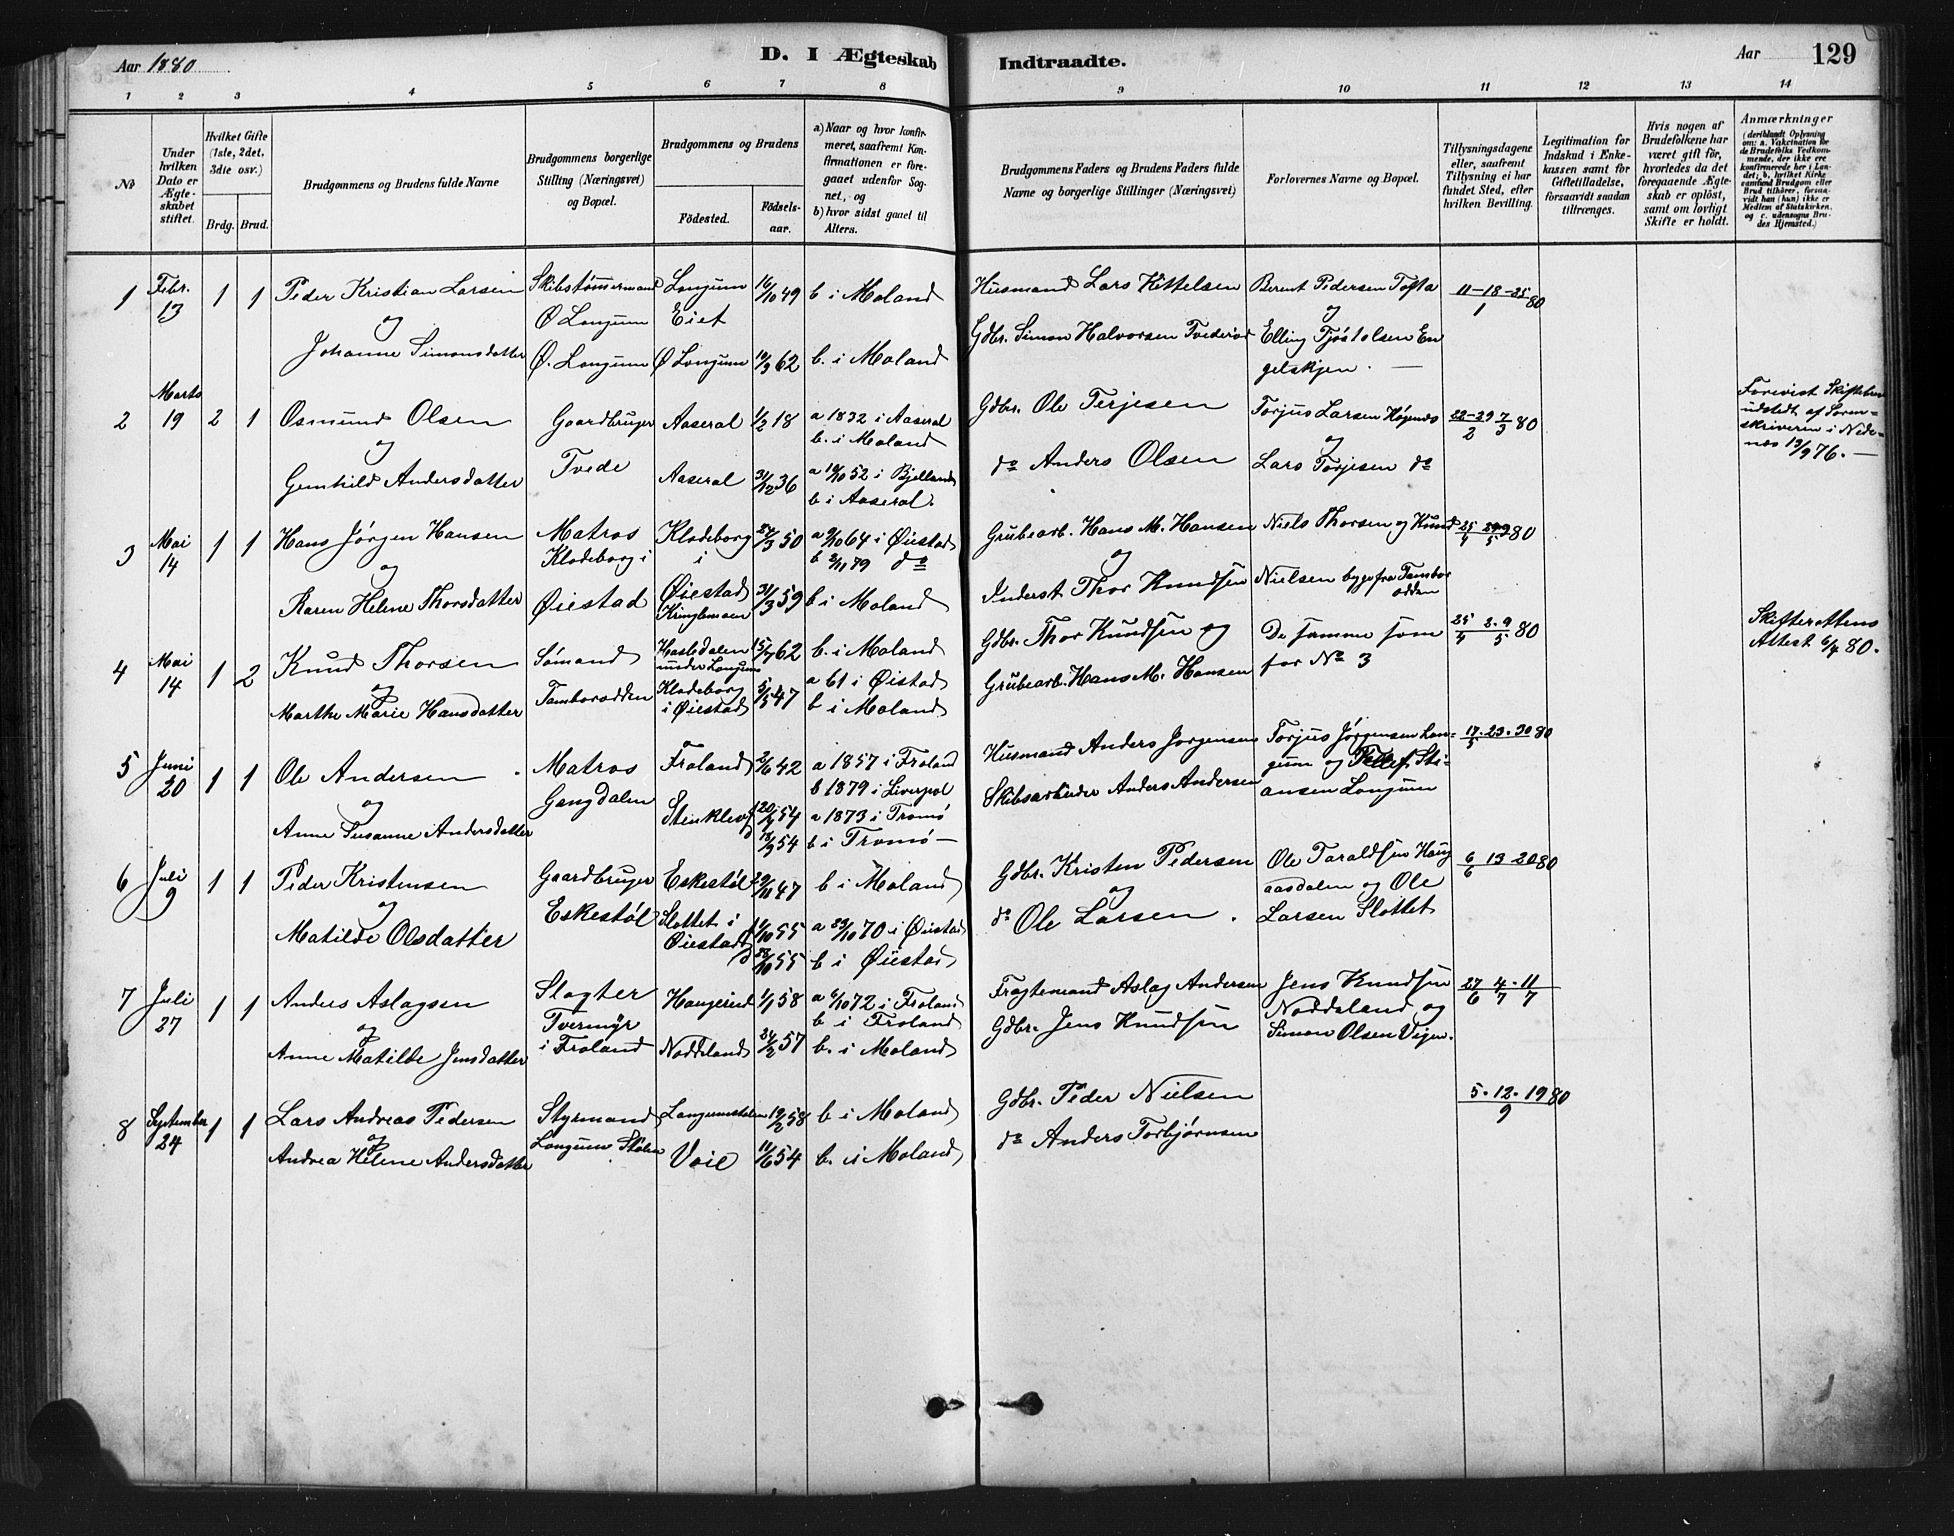 Aar 1880
D. I Ægteskab Indtraadte.
Aar 129
1 2 3 4 5 6 7 8 9 10 11 12 13 14
No
Under hvilken Dato er Ægteskabet stiftet.
Hvilket Gifte (1ste, 2det, 3die osv.)
Brdg. Brud.
Brudgommens og Brudens fulde Navne
Brudgommens borgerlige Stilling (Næringsvei) og Bopæl.
Brudgommens og Brudens
Fødested.
Fødselsaar.
a) Naar og hvor konfirmeret, saafremt Konfirmationen er foregaaet udenfor Sognet, og
b) hvor sidst gaaet til Alters.
Brudgommens Faders og Brudens Faders fulde Navne og borgerlige Stillinger (Næringsvei)
Forlovernes Navne og Bopæl.
Tillysningsdagene eller, saafremt Tillysning ei har fundet Sted, efter hvilken Bevilling.
Legitimation for Indskud i Enkekassen samt for Giftetilladelse, forsaavidt saadan tiltrænges.
Hvis nogen af Brudefolkene har været gift før, hvorledes da det foregaaende Ægteskab er opløst, samt om lovligt Skifte er holdt.
Anmærkninger
(deriblandt Oplysning om: a. Vakcination for de Brudefolks Vedkommende, der ikke ere konfirmerede her i Landet; b. hvilket Kirkesamfund Brudgom eller Brud tilhører, forsaavidt han (hun) ikke er Medlem af Statskirken, og c. udensogns Brudes Hjemsted.)
1 Febr. 13 1 1 Peder Kristian Larsen Skibstømmermand Longum 16/10 49 b i Moland Husmand Lars Kittelsen Berent Pedersen Tofta 11-18-25/1 80
og Ø Longum Eiet og
Johanne Simonsdatter Ø. Longum Ø Longum 10/9 62 b. i Moland Gdbr. Simon Halvorsen Elling
gelskjen.
2 Marts 19 2 1 Osmund Olsen Gaardbruger Aaseral 1/2 18 a 1832 i Aaseral Gdbr. Ole Terjesen Torjus Larsen Høgenæs 22-29/2 7/3 80 Forevist Skiftebrev
b. i Moland udstedt af Sorenskriveren i Nedenæs 13/9 76.
og Tvede og
Gunhild Andersdatter Aaseral 31/12 36 a 10/10 52 i Bjelland do Anders Olsen Lars Torjesen do
b i Aaseral.
3 Mai 14 1 1 Hans Jørgen Hansen Matros Klodeborg 24/3 50 a 9/10 64 i Øiestad Grubearb. Hans M. Hansen Niels Thorsen og Knud 25/4 80
og Klodeborg i i b 2/11 79 do og
Karen Helene Thorsdatter Øiestad Øiestad Kringlemoen 31/3 59 b i Moland Inderst Thor Knudsen Nielsen bygs fra Tamborodden
4 Mai 14 1 2 Knud Thorsen Sømand Hasledalen under Longum 15/7 62 b. i Moland Gdbr. Thor Knudsen og De samme som 25/4 2. 9/5 80 Skifterettens Attest 6/4 80.
og for No 3
Marthe Marie Hansdatter Tamborodden Klodeborg i Øiestad 5/5 47 a 61 i Øistad Grubearb. Hans M. Hansen
b i Moland
5 Juni 20 1 1 Ole Andersen Matros Froland 2/6 42 a 1857 i Froland Husmand Anders Jorgensen Torjus Jørgensen Lon- 17. 23. 30/5 80
og Gangdalen b 1879 i Liverpol gum og Tellef Sti-
Anne Susanne Andersdatter Stinklev f 20/7 54 a 1873 i Tromø Skibsarbeider Anders Andersen ansen Longum
d 18/9 54 b i Tromø
6 Juli 9 1 1 Peder Kristensen Gaardbruger Eskestøl 29/11 47 b i Moland Gdbr. Kristen Pedersen Ole Taraldsen Haug 6 13 20/6 80
og Eskestøl og aasdalen og Ole
Matilde Olsdatter Slottet i Øiestad f 1/10 55 a 23/10 70 i Øiestad do Ole Larsen. Larsen Slottet
d 28/10 55 b i Øiestad
7 Juli 27 1 1 Anders Aslagsen Slagter Haugerud 1/1 58 a 6/10 72 i Froland Fragtemand Aslag Andersen Jens Knudsen 27/6 4/7 11/7
og Tvermyr b i Froland Noddeland og
Anne Matilde Jensdatter i Froland Noddeland 24/2 57 b. i Moland Gdbr. Jens Knudsen Simon Olsen Vejen.
8 September 24 1 1 Lars Andreas Pedersen Styrmand Longumstølen 19/2 58 b i Moland Gdbr. Peder Nielsen 5. 12. 19/9 80
og Longum Stølen
Andrea Helene Andersdatter Voie 11/6 54 b. i Moland do Anders Torbjørnsen